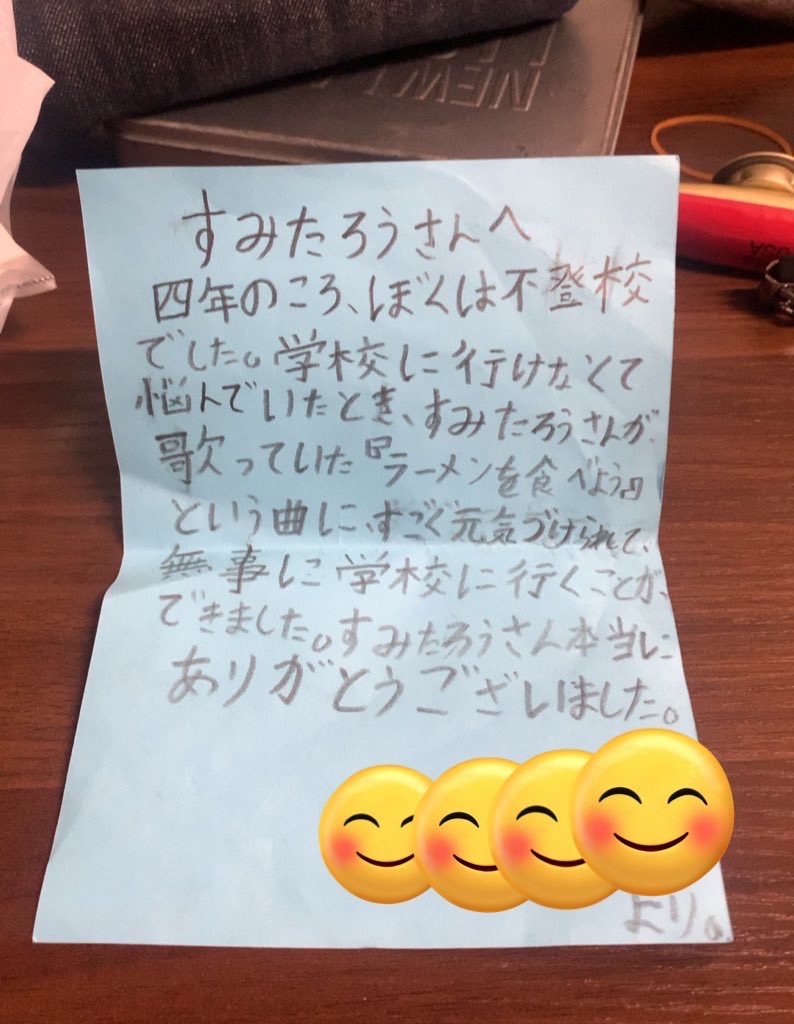 NEW
すみたろうさんへ
四年のころ、ぼくは不登校
でした。学校に行けなくて
悩んでいたとき、すみたろうさんが、
歌っていた『ラーメンを食べよう』
という曲に、すごく元気づけられて、
無事に学校に行くことが、
できました。すみたろうさん本当に
ありがとうございました。
より。
USA